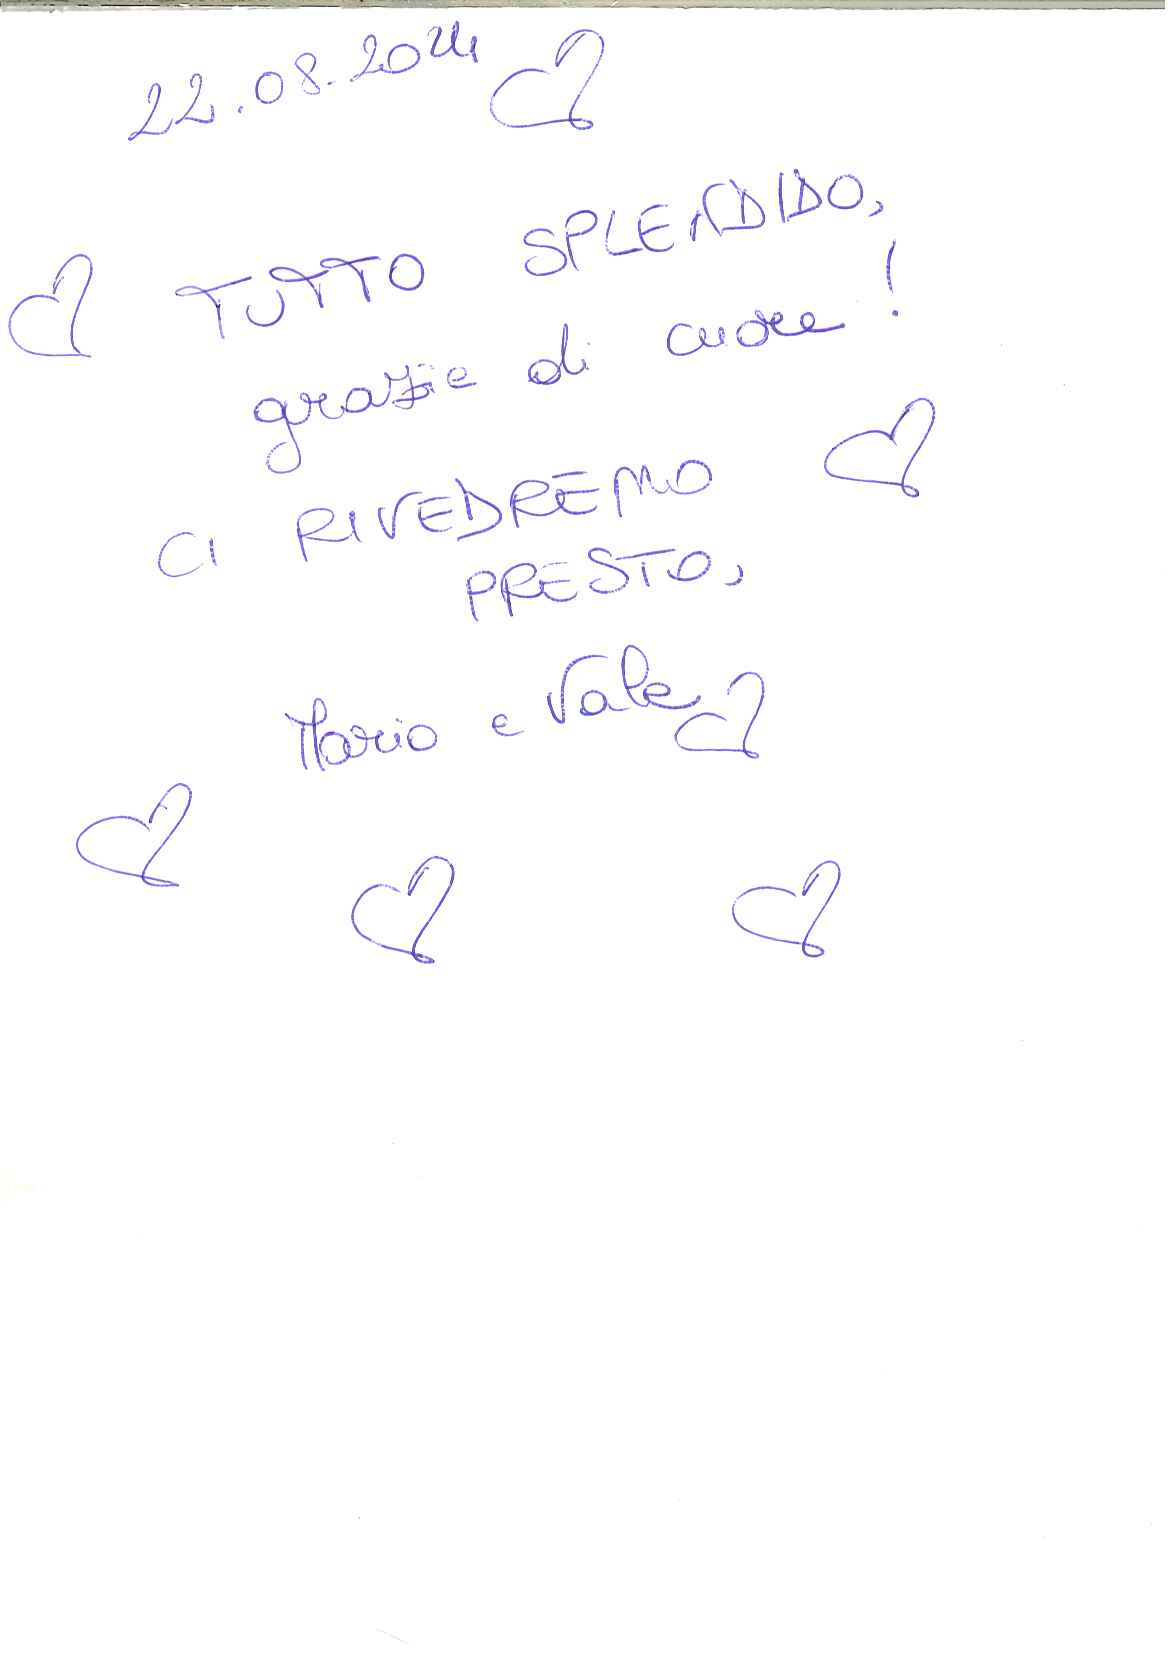 22.08.2024
TUTTO SPLENDIDO,
grazie di cuore!
CI RIVEDREMO
PRESTO,
Mario e Vale